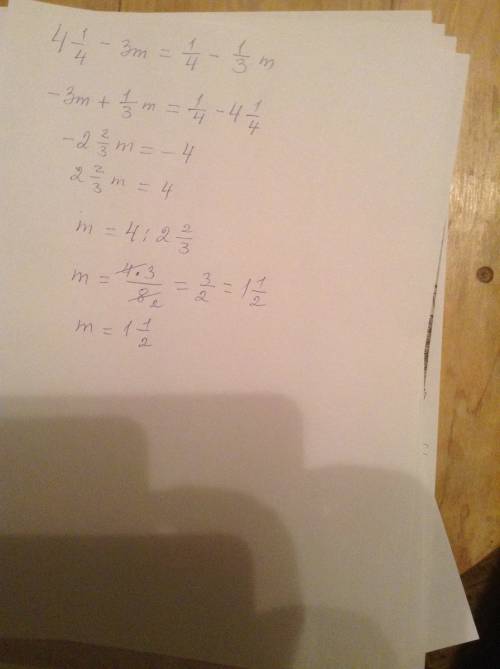 4 1/4 - 3m = 1/4 - 1/3 m
-3m + 1/3 m = 1/4 - 4 1/4
-2 2/3 m = -4
2 2/3 m = 4
m = 4 : 2 2/3
m = 4·3/8 2 = 3/2 = 1 1/2
m = 1 1/2